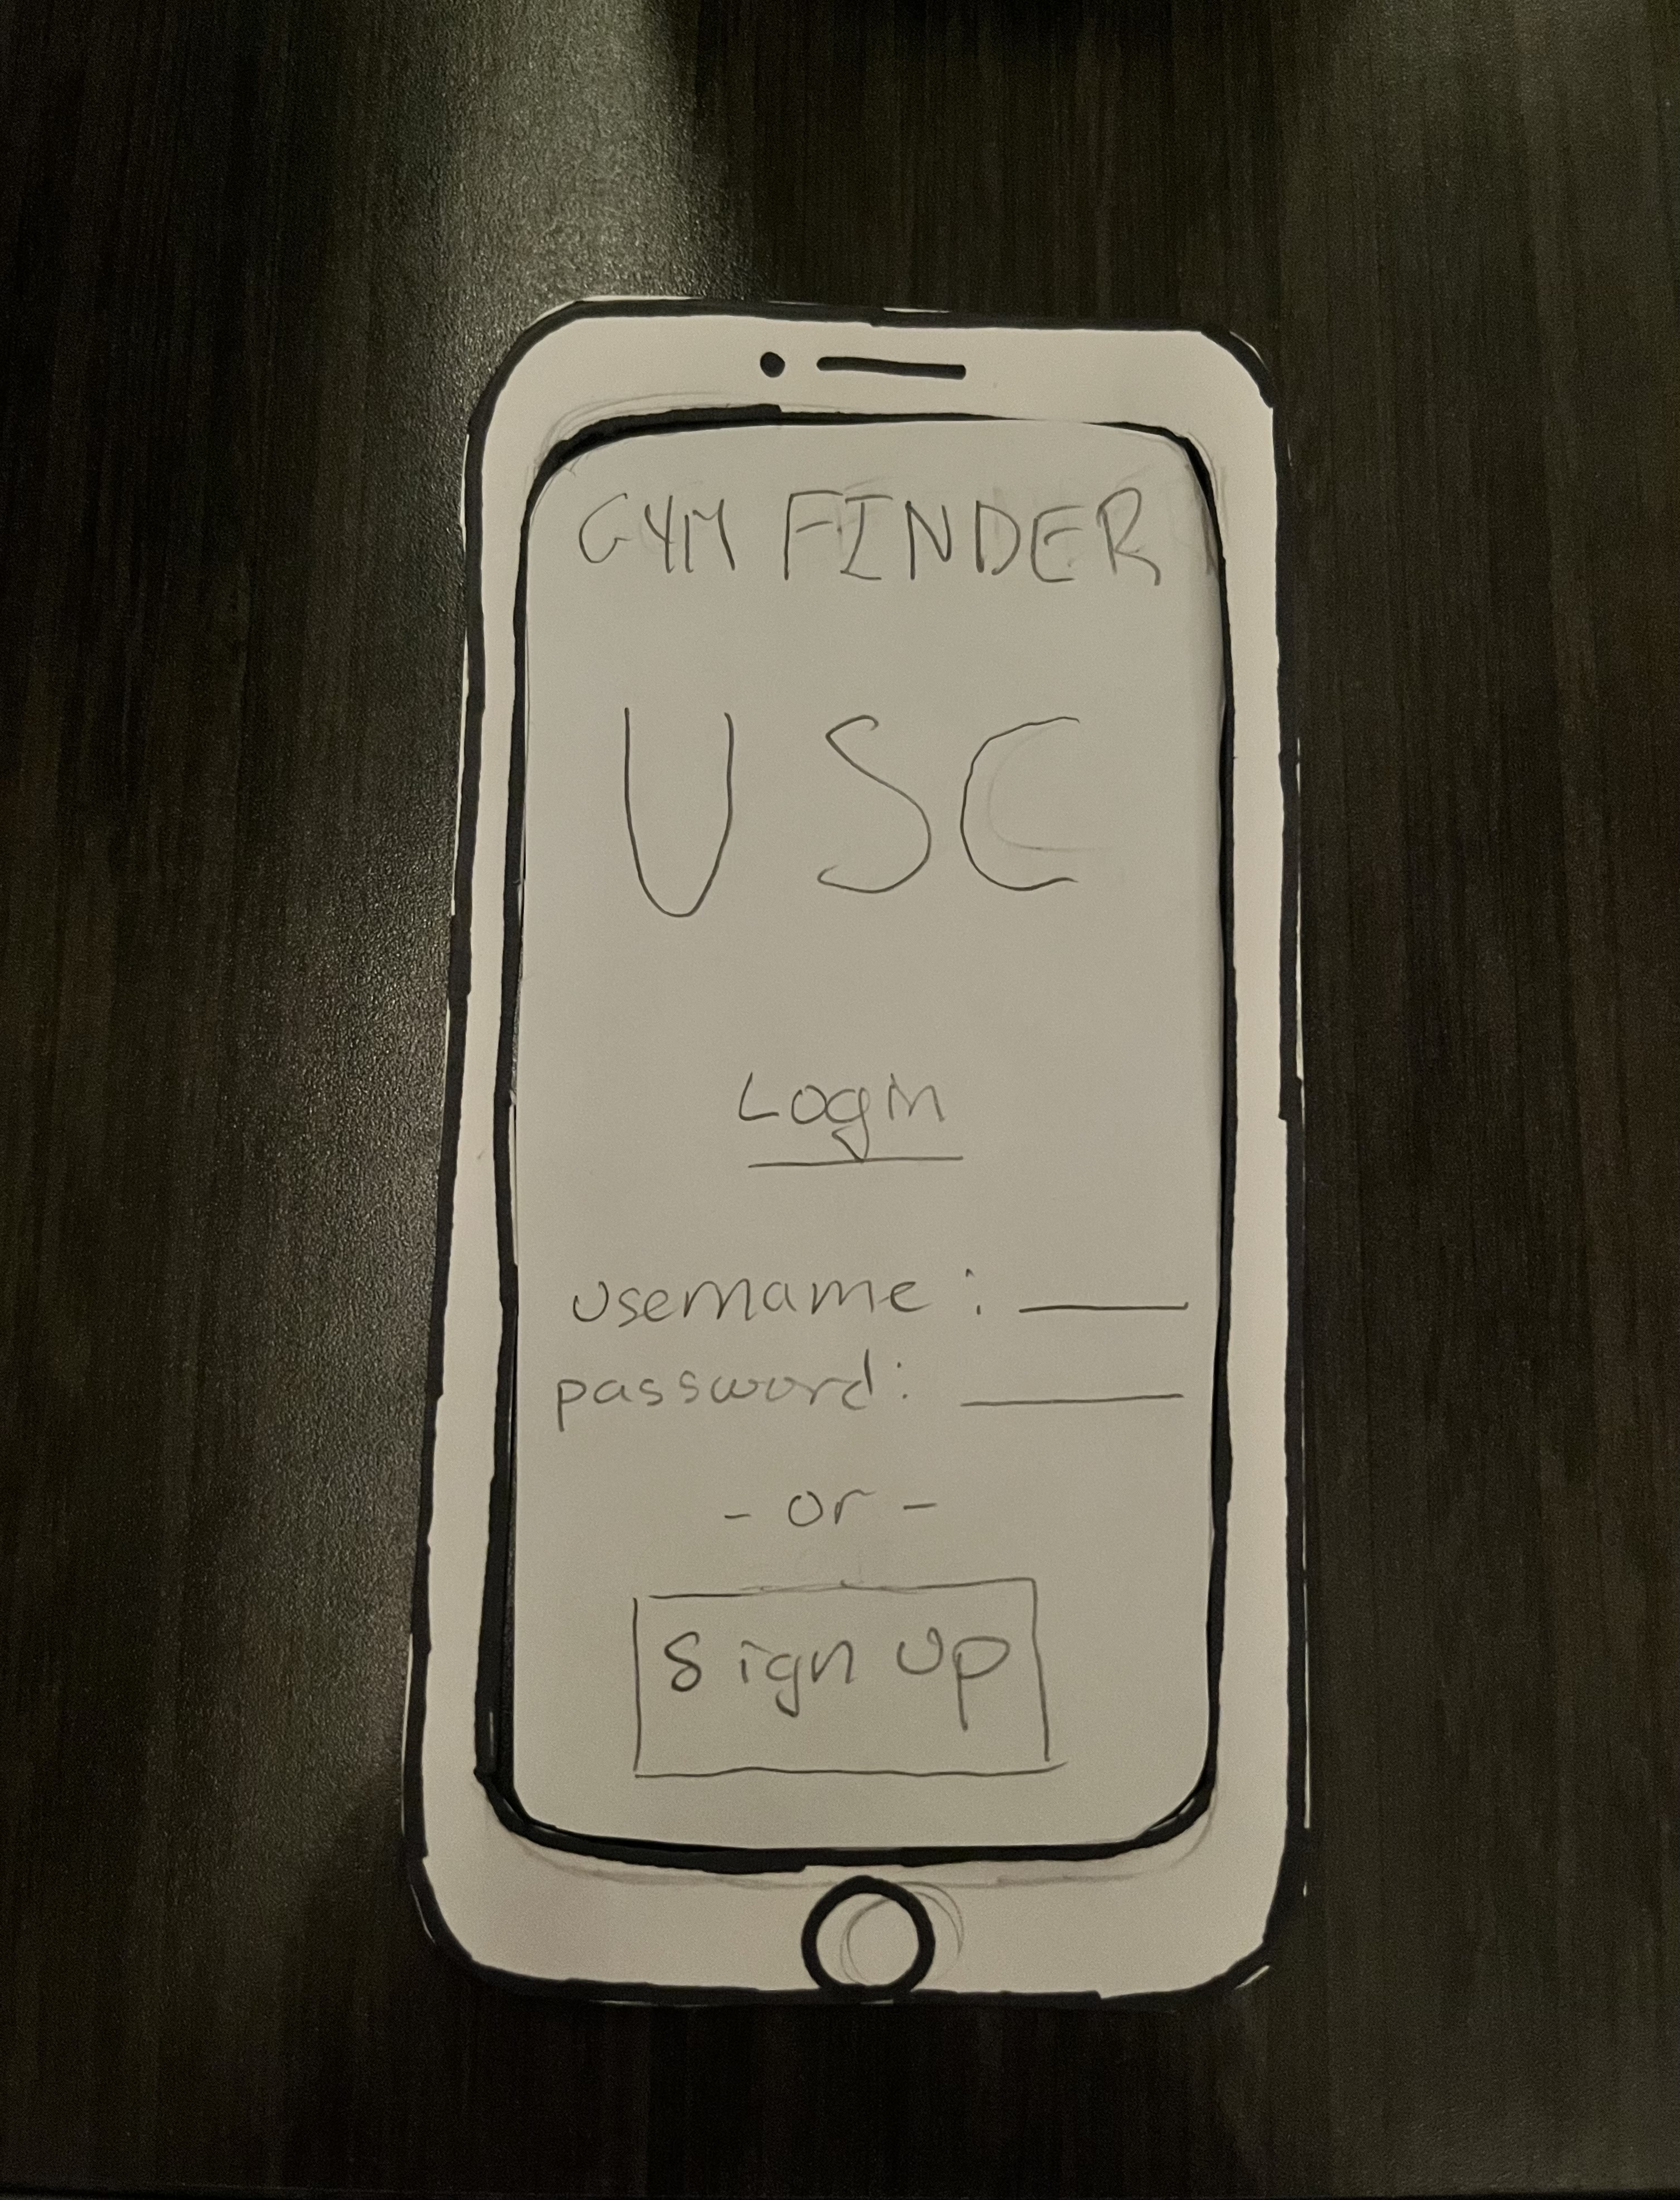 GYM FINDER
USC
Login
username : ____
password: ____
- or -
Sign Up